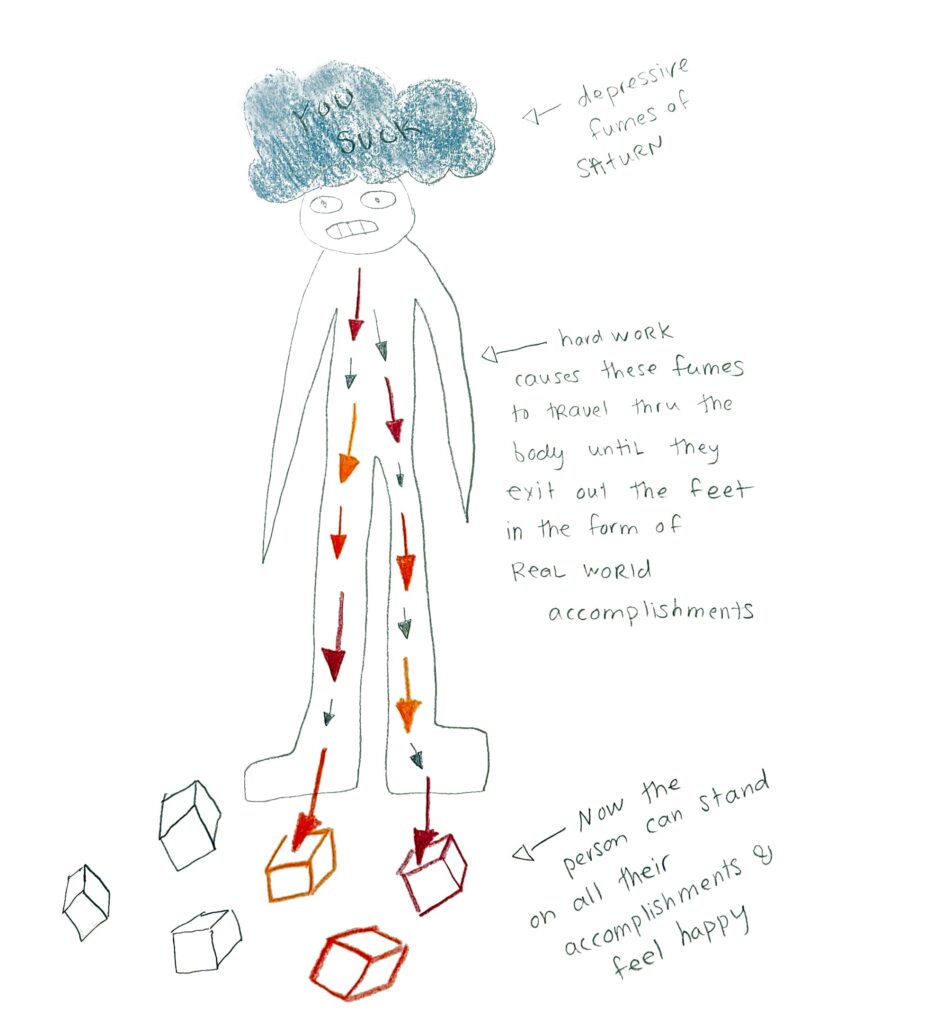 YOU
SUCK
depressive
fumes of
SATURN
hard WORK
causes these fumes
to travel thru the
body until they
exit out the feet
in the form of
Real world
accomplishments
Now the
person can stand
on all their
accomplishments &
feel happy